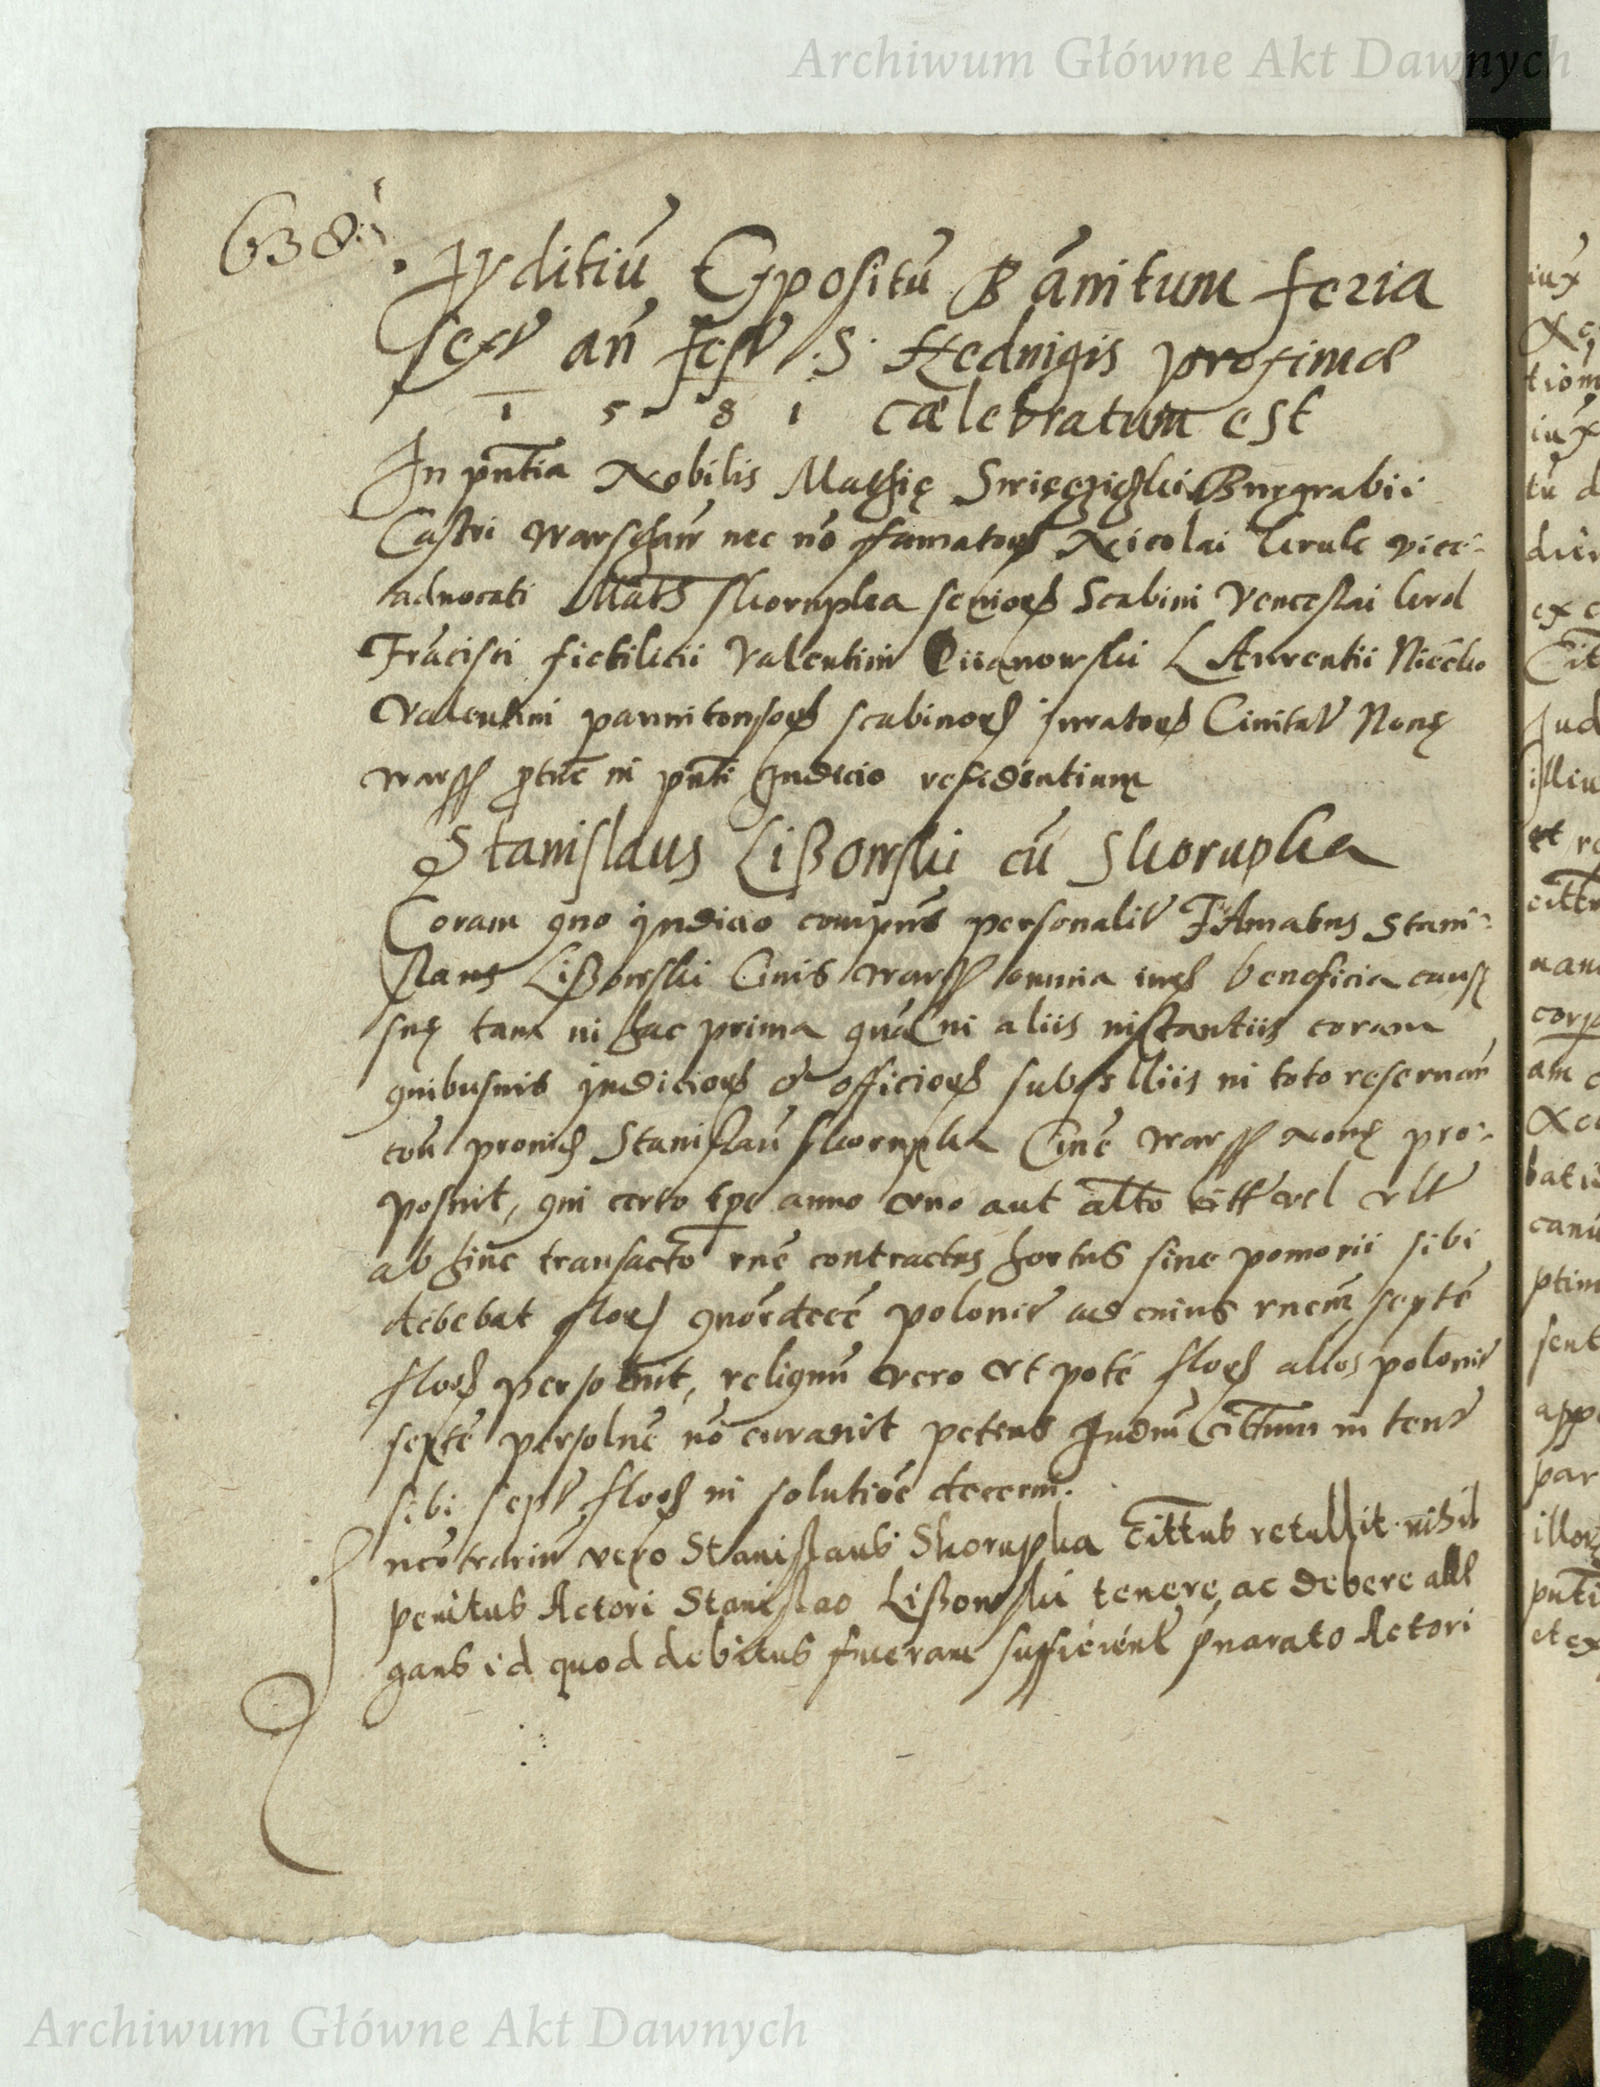 Archiwum Główne Akt Dawnych
638
Iuditiū Expositū Bānitum feria
sext an fest S. Hedvigis proximae
1 5 8 1 caelebratum est
In pn̄tia Nobilis Mathię Swięcziczki Burgrabii
Castri Warschaw nec nō famatorum Nicolai kruk vice-
advocati Math skorupka seniorum Scabini Venceslai krol
Frācisci fictilicii Valentini Ciianowski LAurentii
Valentini pannitonsorum scabinorum iuratorum Civitat Novę
Warss ptūc in pn̄ti Iudicio residentium
Stanislaus Lißowski cū Skorupka
Coram quo Iudicio compns personalit FAmatus Stani-
slaus Lißowski Civis Warss omnia iuris beneficia causę
suę tam in hac prima quā in aliis instantiis coram
quibusvis Iudiciorum et officiorum subselliis in toto reservan
tou provid Stanislaū skorupka Civē Warss Novę pro-
posuit, qui certo tpe anno uno aut alto vel ult
ab hinc transacto rne contractus hortus sive pomorii sibi
debebat flor quordecē polonic ad cuius rnem septē
flor persolvit, reliquū vero ut pote flor altos polonic
septē persolvē nō curavit petens Iudm Cittum in tens
sibi sept flor in solutiōe decerni.
vero Stanislaus Skorupka Cittus retullit nihil
penitus Actori Stanislao Lißowski tenere, ac debere alle
gans id quod debitus fueram sufficient pnarato Actori
Archiwum Główne Akt Dawnych